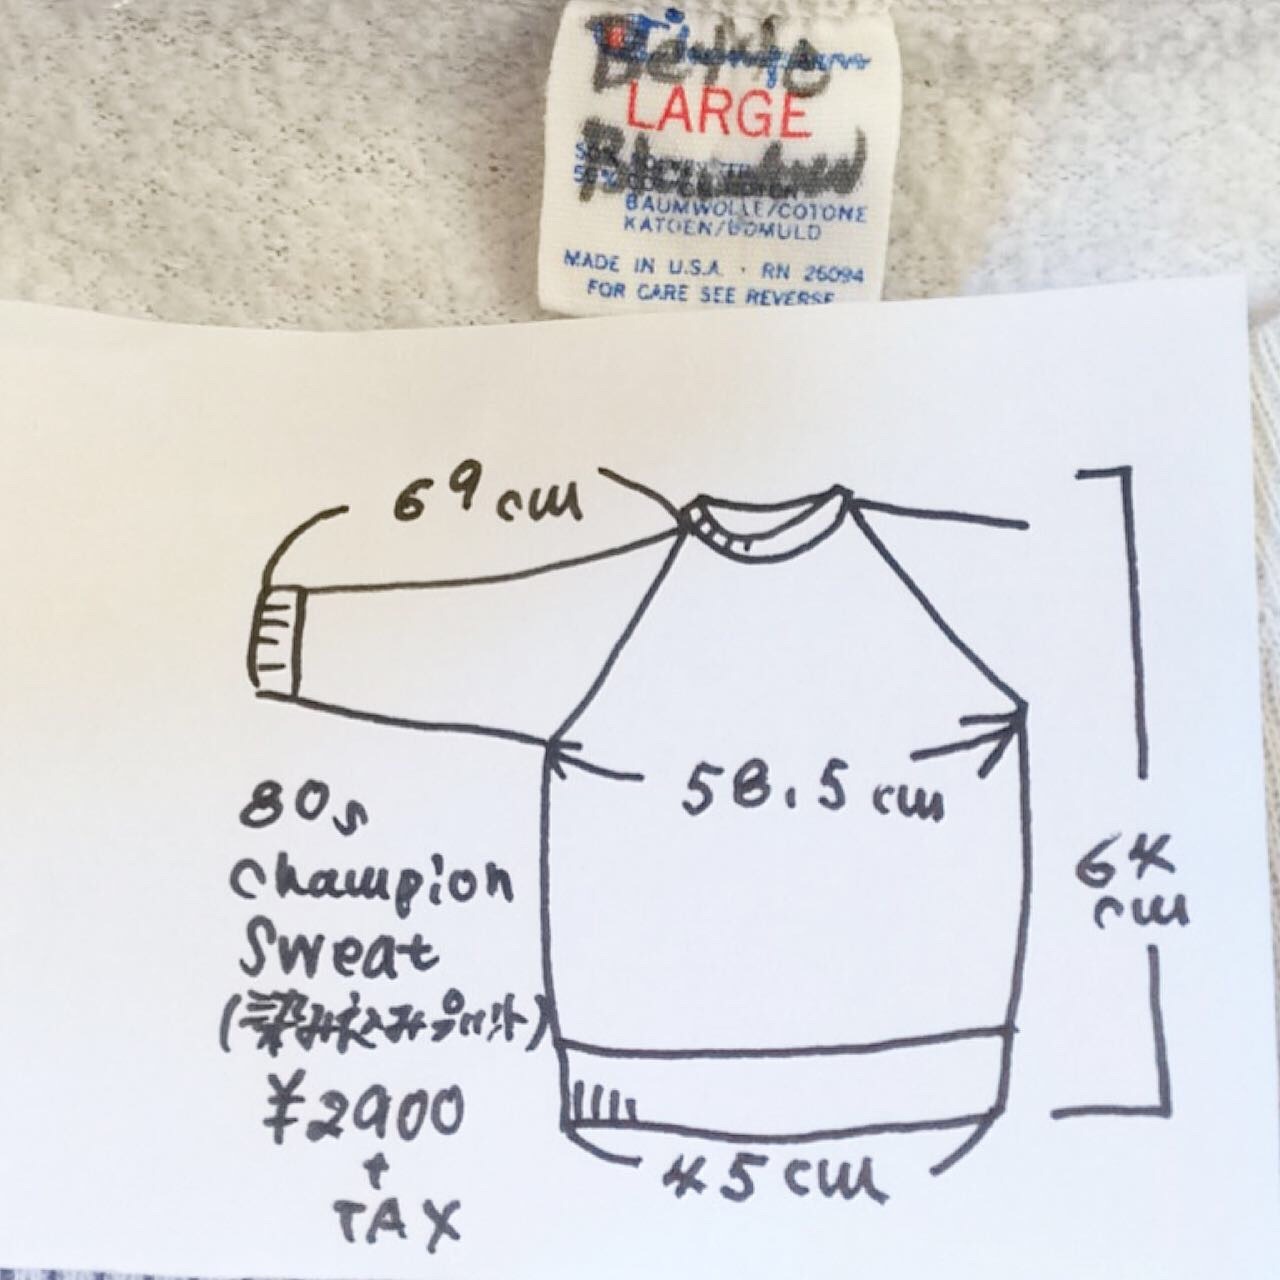 LARGE
BAUMWOLLE/COTONE
KATOEN/BOMULD
MADE IN U.S.A. · RN 26094
FOR CARE SEE REVERSE
69cm
58.5cm
64
cm
80s
Champion
Sweat
(染み込みプリント)
¥2900
+
TAX
45cm